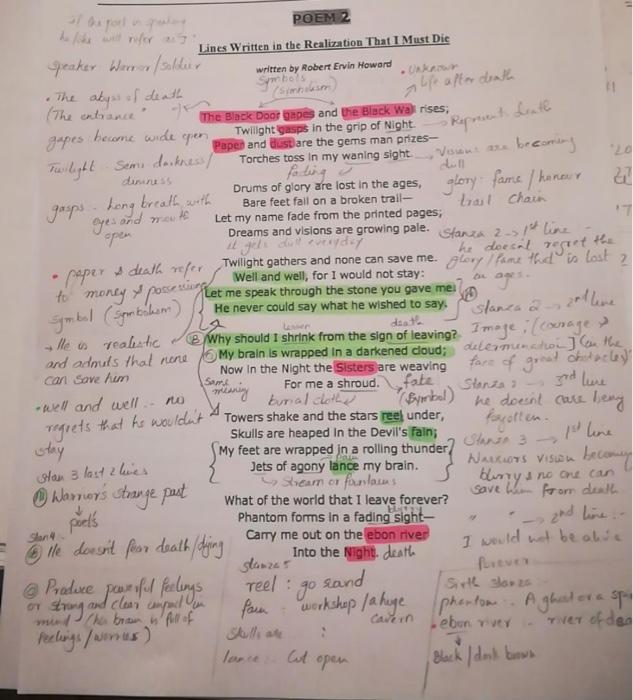 POEM 2
if the poet is speaking
he/she will refer as I
Lines Written in the Realization That I Must Die
Speaker: Warrior/soldier
written by Robert Ervin Howard
Symbols
(Symbolism)
• Unknown
life after death
• The abyss of death
(The entrance)
The Black Door gapes and the Black Wall rises;
gapes: become wide open
Twilight gasps in the grip of Night.
Represents death
Paper and dust are the gems man prizes—
Twilight: Semi-darkness/
dimness
Torches toss in my waning sight.
Visions are becoming
dull
fading
Drums of glory are lost in the ages,
glory: fame/honour
gasps: long breath with
eyes and mouth
open
Bare feet fall on a broken trail—
trail: chain
Let my name fade from the printed pages;
Dreams and visions are growing pale.
it gets dull everyday
Stanza 2 -> 1st line
he doesn't regret the
glory/fame that is lost
on ages.
Twilight gathers and none can save me.
Well and well, for I would not stay:
• paper & death refer
to money & possessions
Symbol (Symbolism)
Let me speak through the stone you gave me:
He never could say what he wished to say.
Stanza 2 -> 2nd line
Image: (courage &
determination) (in the
face of great obstacles)
lessen
death
Why should I shrink from the sign of leaving?
-> He is realistic
and admits that none
can save him
My brain is wrapped in a darkened cloud;
Now in the Night the Sisters are weaving
For me a shroud.
Same
meaning
burial cloths
fate
(Symbol)
Stanza 2 -> 3rd line
he doesn't care being
forgotten.
• well and well: no
regrets that he wouldn't
stay
Towers shake and the stars reel under,
Skulls are heaped in the Devil's fain;
My feet are wrapped in a rolling thunder,
Jets of agony lance my brain.
Stream or fountains
Stanza 3 -> 1st line
Warriors vision becoming
blurry & no one can
save him from death
Stan 3 last 2 lines
Warrior's strange past
poet's
What of the world that I leave forever?
blurry
Phantom forms in a fading sight—
Carry me out on the ebon river
Into the Night.
death
" -> 2nd line:-
I would not be alive
forever
Stan 4
He doesn't fear death/dying
stanza 5
reel: go round
fain: workshop/a huge
cavern
Skulls are :
lance: Cut open
Produce powerful feelings
or strong and clear impact in
mind (his brain is full of
feelings/worries)
Sixth stanza:-
phantom:- A ghost or a
• ebon river:- river of
Black/dark brown